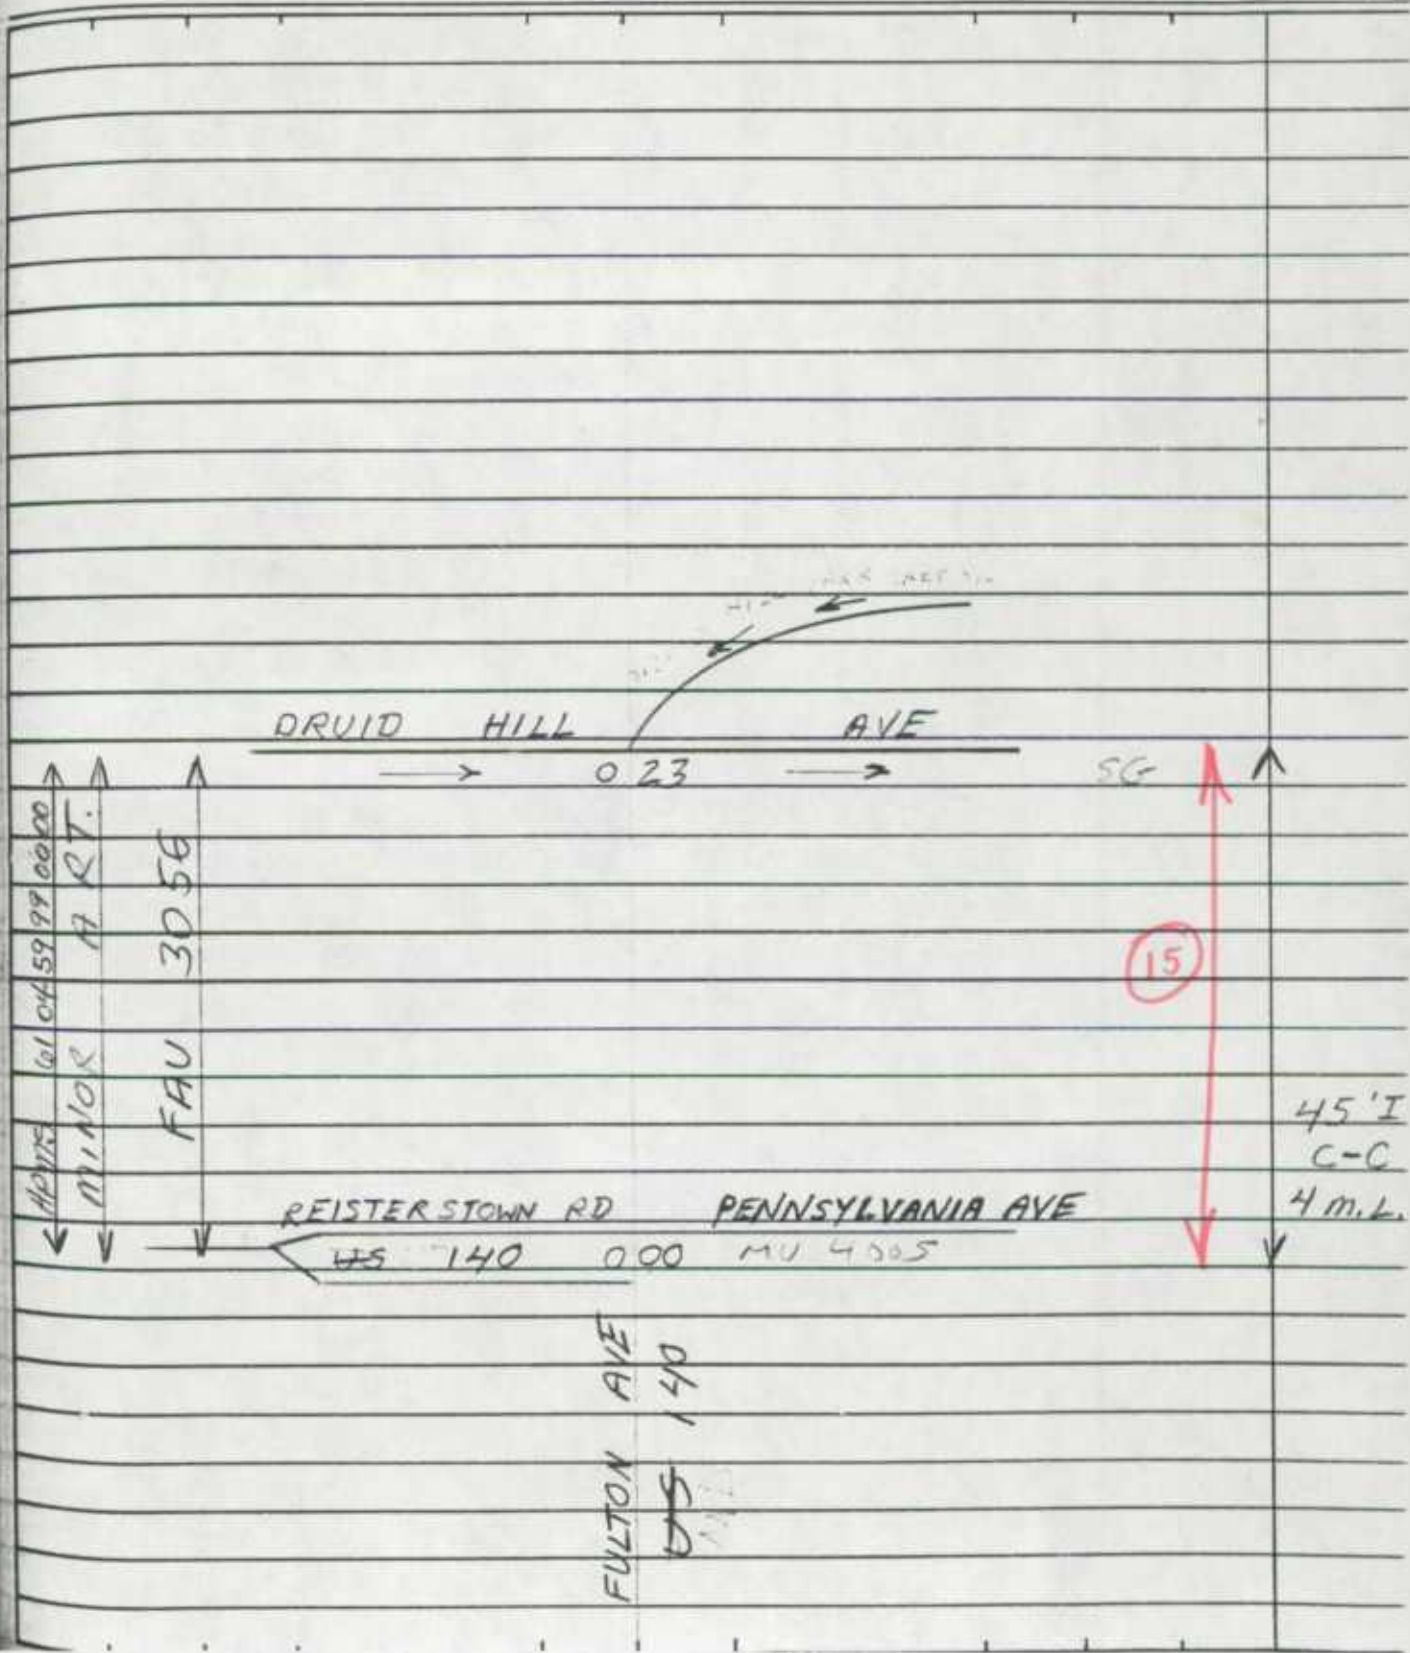 DRUID HILL AVE
0 23
SG
HPMS 61 04 59 99 00 00
MINOR ART.
FAU 3056
15
45' I
C-C
4 M.L.
REISTERSTOWN RD PENNSYLVANIA AVE
US 140 0 00 MU 4005
FULTON AVE
US 140